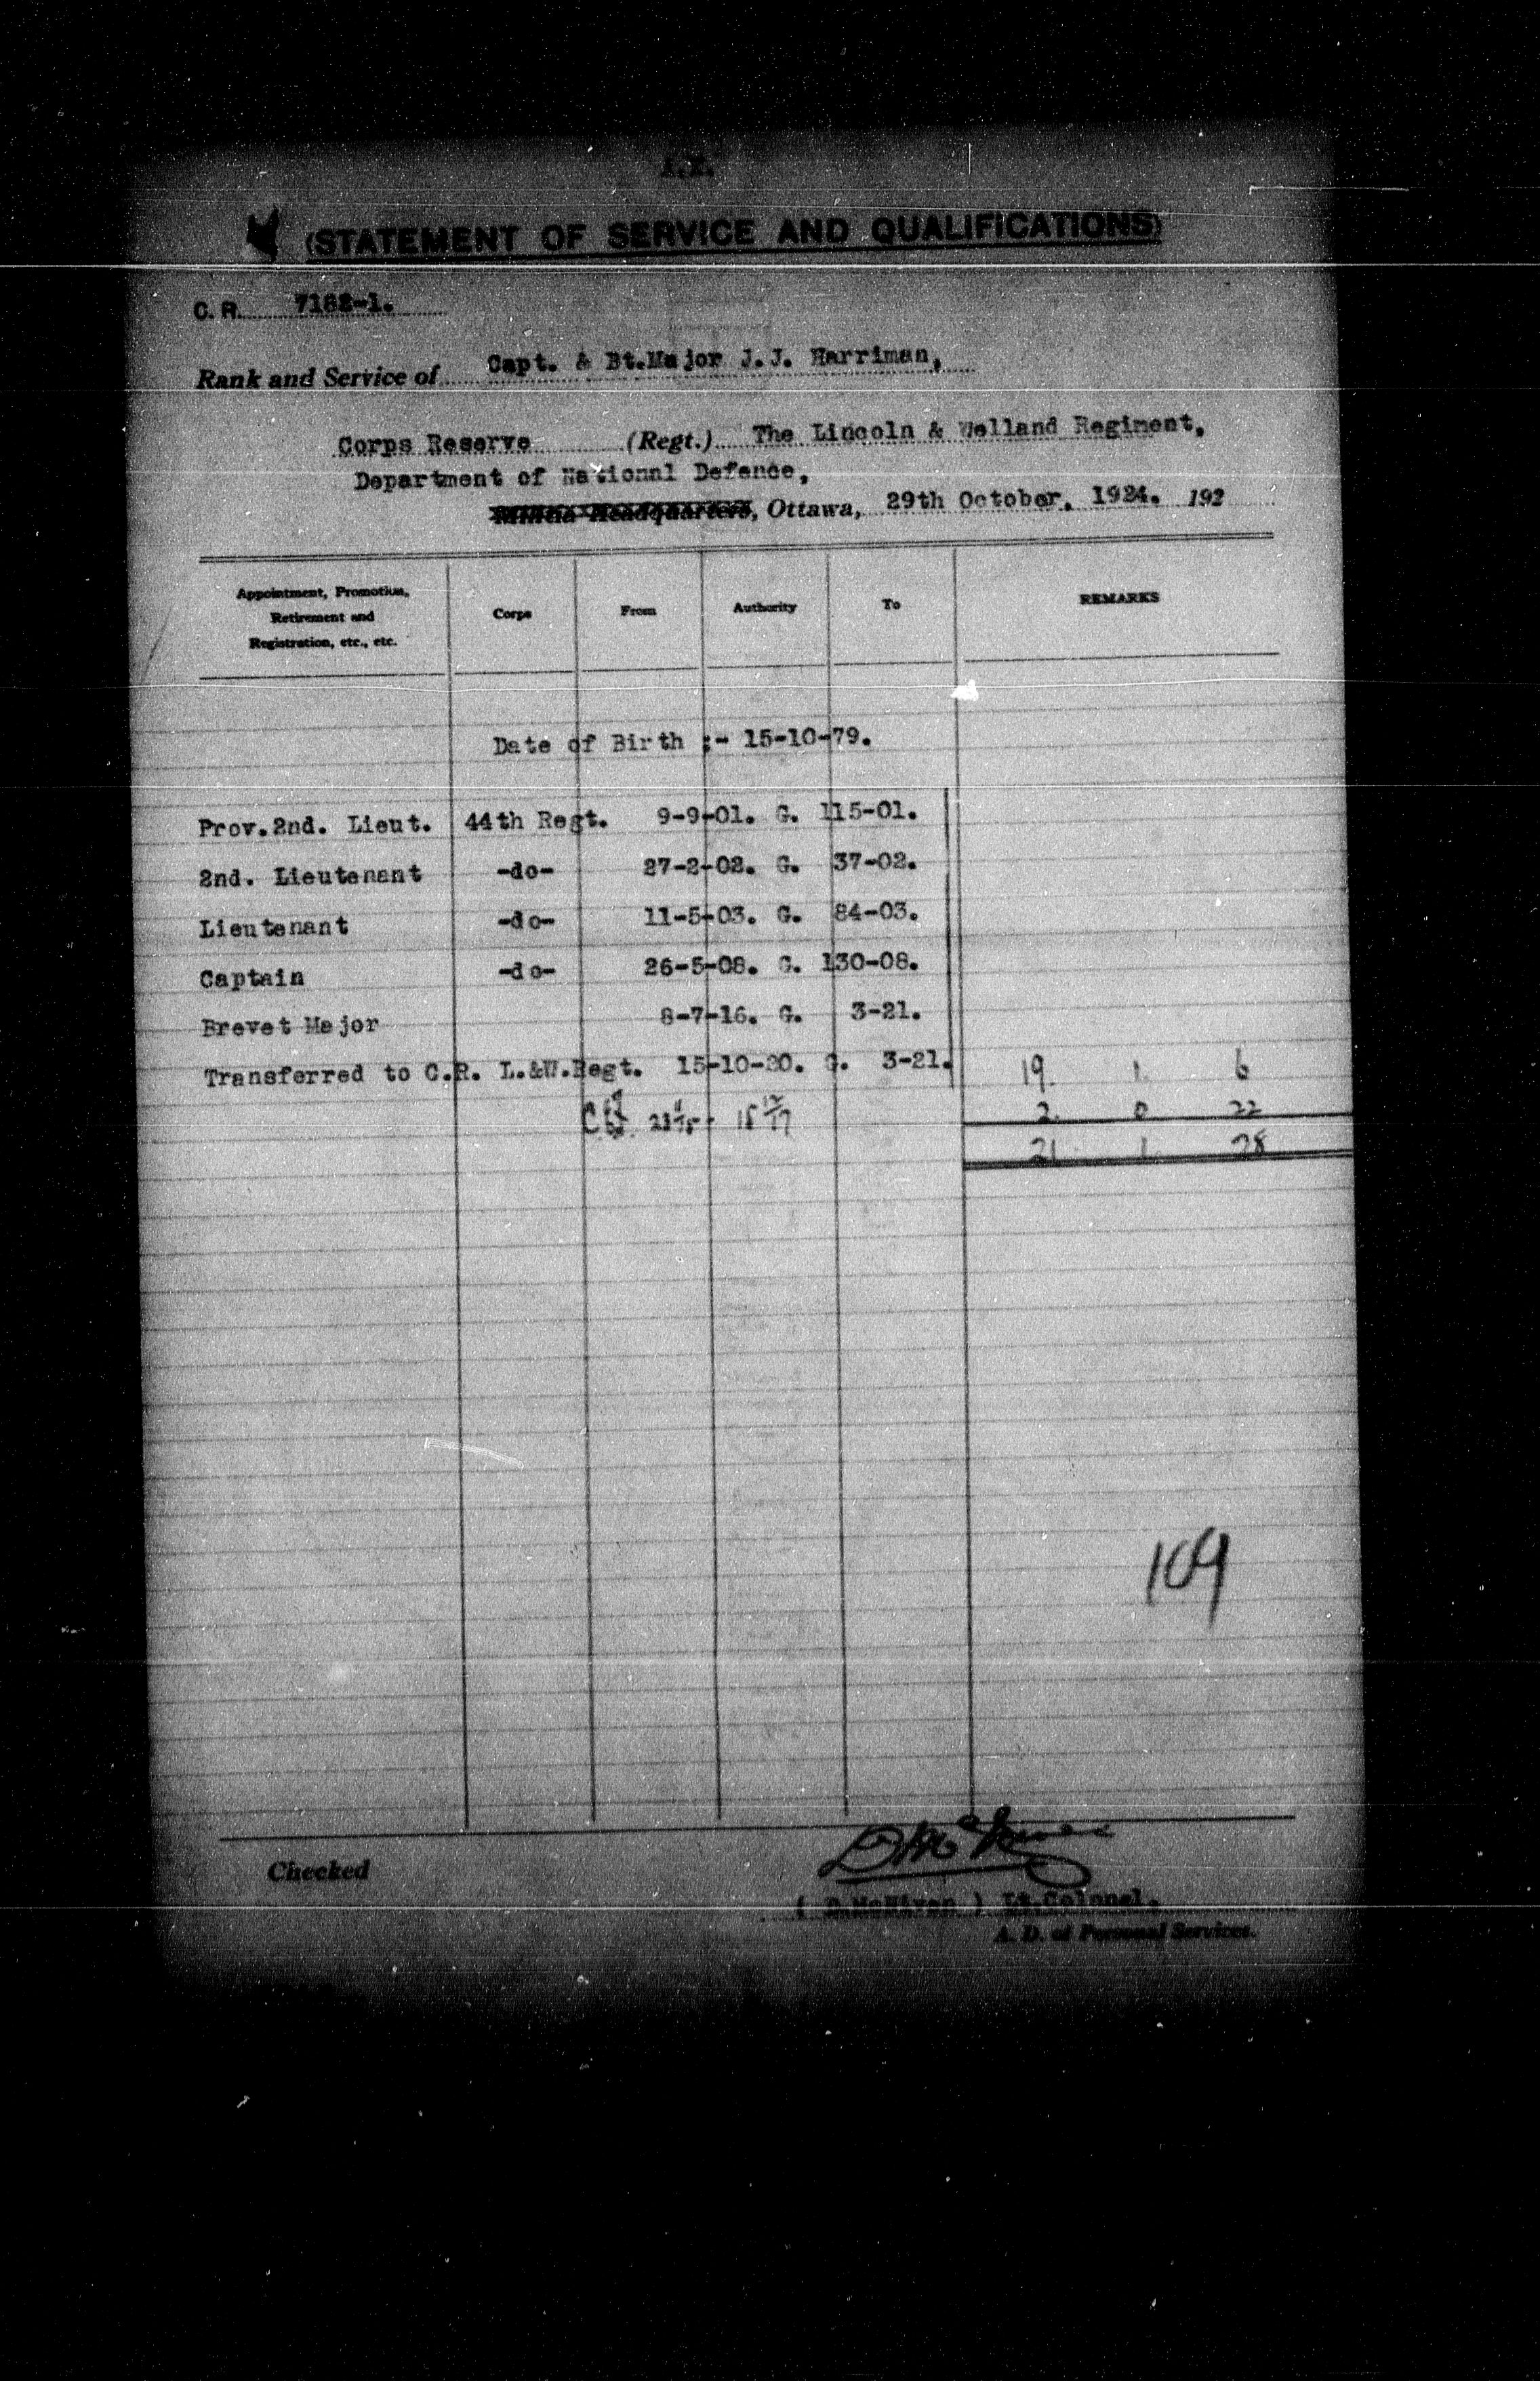 (STATEMENT OF SERVICE AND QUALIFICATIONS)
C. R. 7182-1.
Rank and Service of Capt. & Bt.Major J.J. Harriman,
Corps Reserve (Regt.) The Lincoln & Welland Regiment,
Department of National Defence,
Militia Headquarters, Ottawa, 29th October, 1924. 192
Appointment, Promotion, Retirement and Registration, etc., etc. Corps From Authority To REMARKS
Date of Birth :- 15-10-79.
Prov.2nd. Lieut. 44th Regt. 9-9-01. G. 115-01.
2nd. Lieutenant -do- 27-2-02. G. 37-02.
Lieutenant -do- 11-5-03. G. 84-03.
Captain -do- 26-5-08. G. 130-08.
Brevet Major 8-7-16. G. 3-21.
Transferred to C.R. L.&W.Regt. 15-10-20. G. 3-21. 19 1 6
2 0 22
21 1 28
109
Checked
( D.McNiven ) Lt.Colonel.
A. D. of Personal Services.